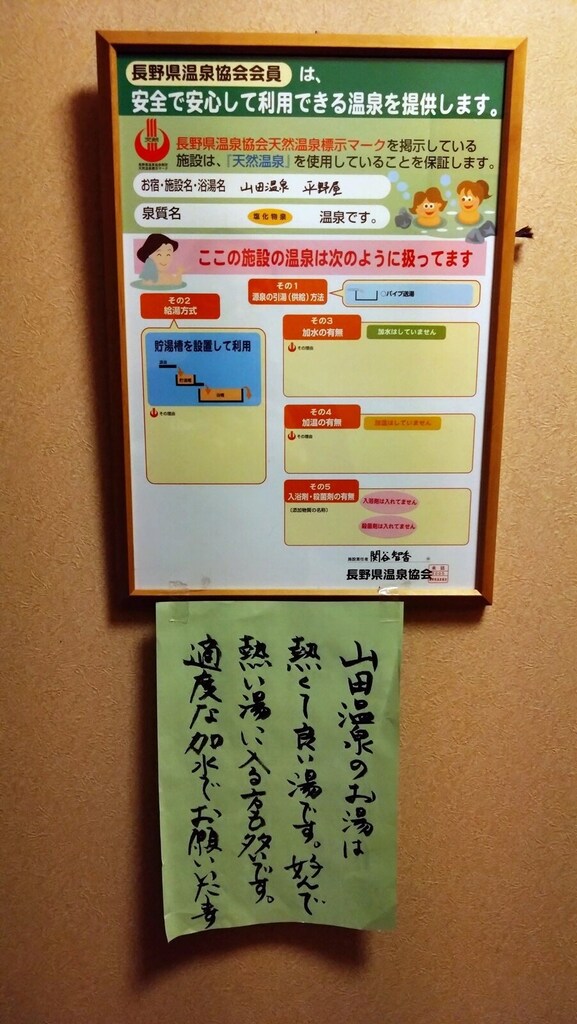 長野県温泉協会会員 は、
安全で安心して利用できる温泉を提供します。
天然
長野県温泉協会天然温泉標示マークを掲示している
施設は、『天然温泉』を使用していることを保証します。
お宿・施設名・浴湯名 山田温泉 平野屋
泉質名 塩化物泉 温泉です。
ここの施設の温泉は次のように扱ってます
その1
源泉の引湯(供給)方法
○パイプ送湯
その2
給湯方式
貯湯槽を設置して利用
貯湯槽
浴槽
その理由
その3
加水の有無
加水はしていません
その理由
その4
加温の有無
加温はしていません
その理由
その5
入浴剤・殺菌剤の有無
入浴剤は入れてません
(添加物類の名称)
殺菌剤は入れてません
関谷智香
長野県温泉協会
山田温泉のお湯は
熱くて良い湯です。好んで
熱い湯に入る方も多いです。
適度な加水でお願いいたす